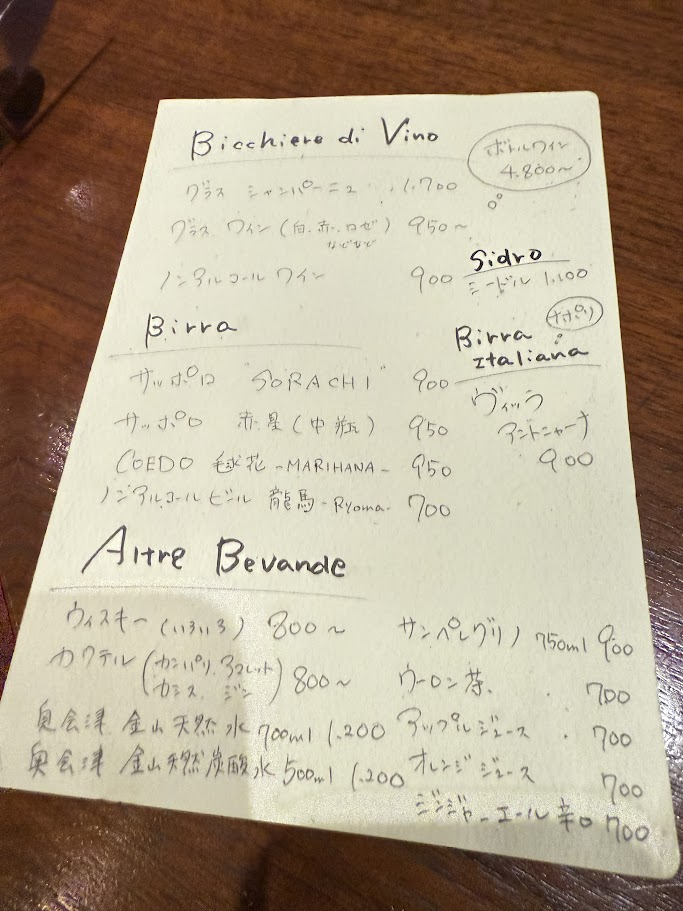 Bicchiere di Vino
ボトルワイン
4.800〜
グラス シャンパーニュ 1.700
グラス ワイン (白.赤.ロゼ) 950〜
などなど
ノンアルコール ワイン 900
Sidro
シードル 1.100
Birra
サッポロ "SORACHI" 900
サッポロ 赤星(中瓶) 950
COEDO 毬花 -MARIHANA- 950
ノンアルコール ビール 龍馬 -Ryoma- 700
ナポリ
Birra
Italiana
ヴィッラ
アントニャーナ
900
Altre Bevande
ウィスキー (いろいろ) 800〜
カクテル (カンパリ.アマレット 800〜
カシス. ジン)
奥会津 金山天然水 700ml 1.200
奥会津 金山天然炭酸水 500ml 1.200
サンペレグリノ 750ml 900
ウーロン茶. 700
アップルジュース . 700
オレンジジュース 700
ジンジャーエール 辛口 700